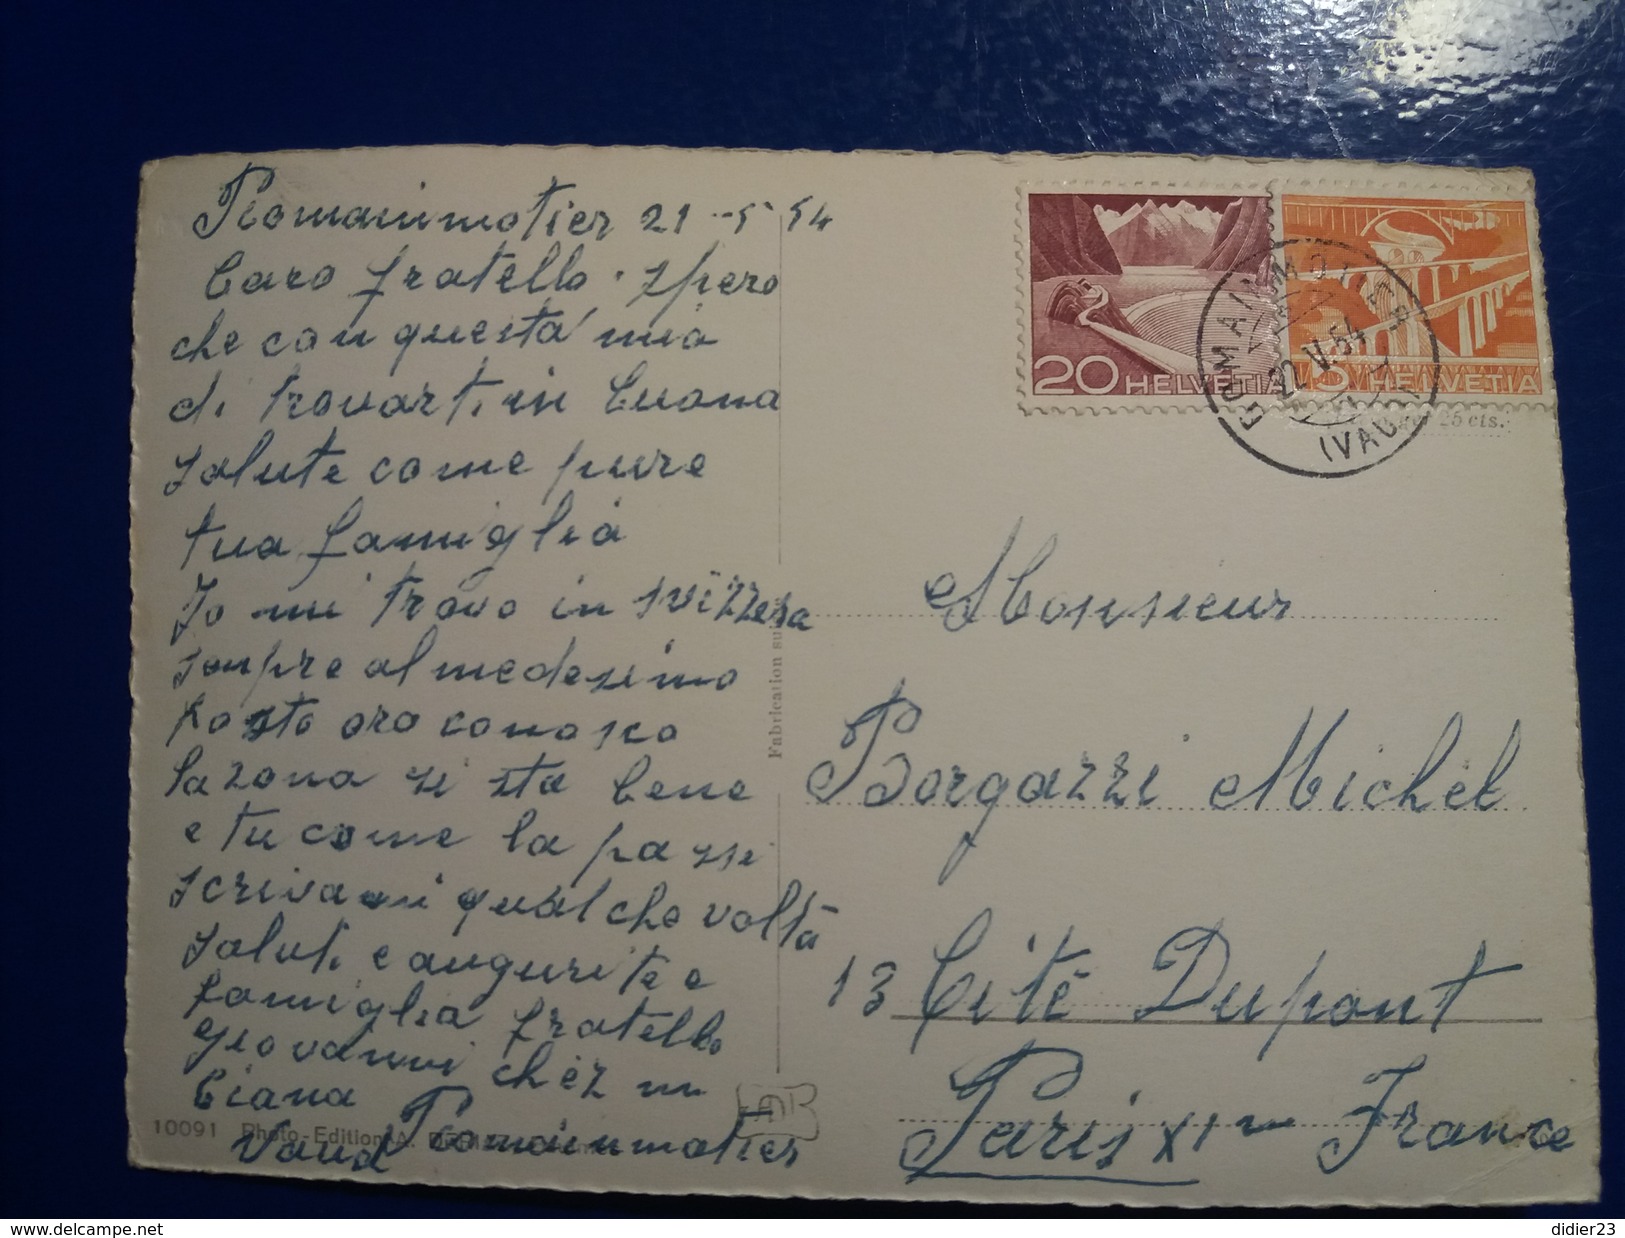 Romainmotier 21-5 54
Caro fratello. spero
che con questa mia
di trovarti in buona
salute come pure
tua famiglia
Io mi trovo in svizzera
sempre al medesimo
posto ora conosco
la zona si sta bene
e tu come la passi
scrivami qualche volta
saluti e auguri te e
famiglia fratello
giovanni chez m
Ciana
Vaud Romainmotier
10091 Photo-Edition A.
Fabrication su
20 HELVETIA
5 HELVETIA
ROMAINMOTIER
22.V.54
(VAUD)
25 cts.
Monsieur
Borgazzi Michel
13 Cité Dupont
Paris XI me France
didier23
www.delcampe.net